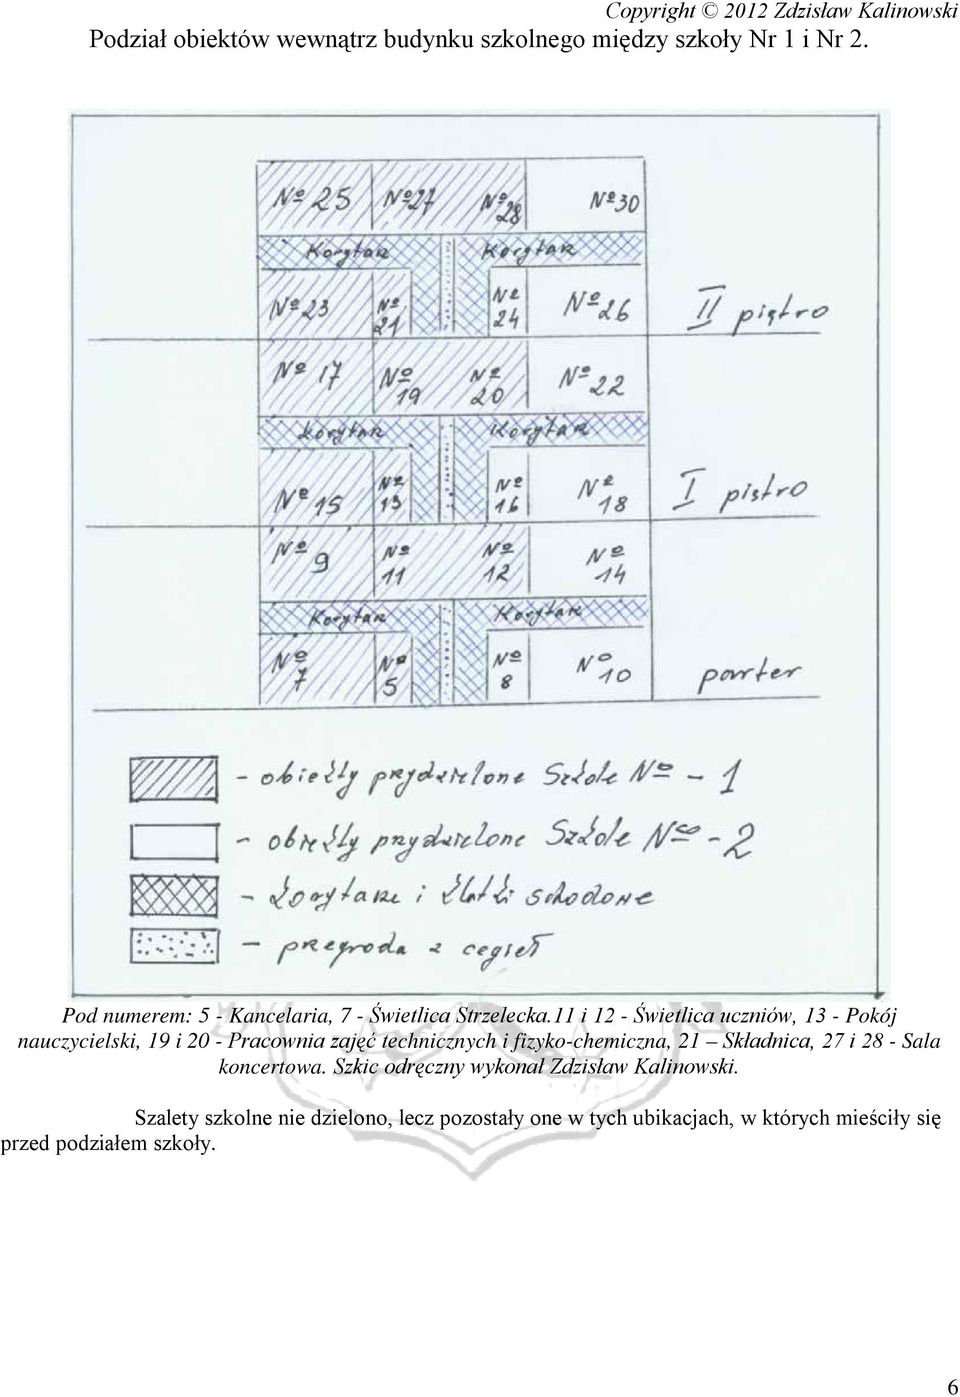 Copyright © 2012 Zdzisław Kalinowski
Podział obiektów wewnątrz budynku szkolnego między szkoły Nr 1 i Nr 2.
№ 25 № 27 № 28 № 30
Korytarz Korytarz
№ 23 № 21 № 24 № 26 II piętro
№ 17 № 19 № 20 № 22
korytarz Korytarz
№ 15 № 13 № 16 № 18 I piętro
№ 9 № 11 № 12 № 14
Korytarz Korytarz
№ 7 № 5 № 8 № 10 parter
- obiekty przydzielone Szkole № - 1
- obiekty przydzielone Szkole № - 2
- korytarze i klatki schodowe
- przegroda z cegieł
Pod numerem: 5 - Kancelaria, 7 - Świetlica Strzelecka.11 i 12 - Świetlica uczniów, 13 - Pokój
nauczycielski, 19 i 20 - Pracownia zajęć technicznych i fizyko-chemiczna, 21 – Składnica, 27 i 28 - Sala
koncertowa. Szkic odręczny wykonał Zdzisław Kalinowski.
Szalety szkolne nie dzielono, lecz pozostały one w tych ubikacjach, w których mieściły się
przed podziałem szkoły.
6